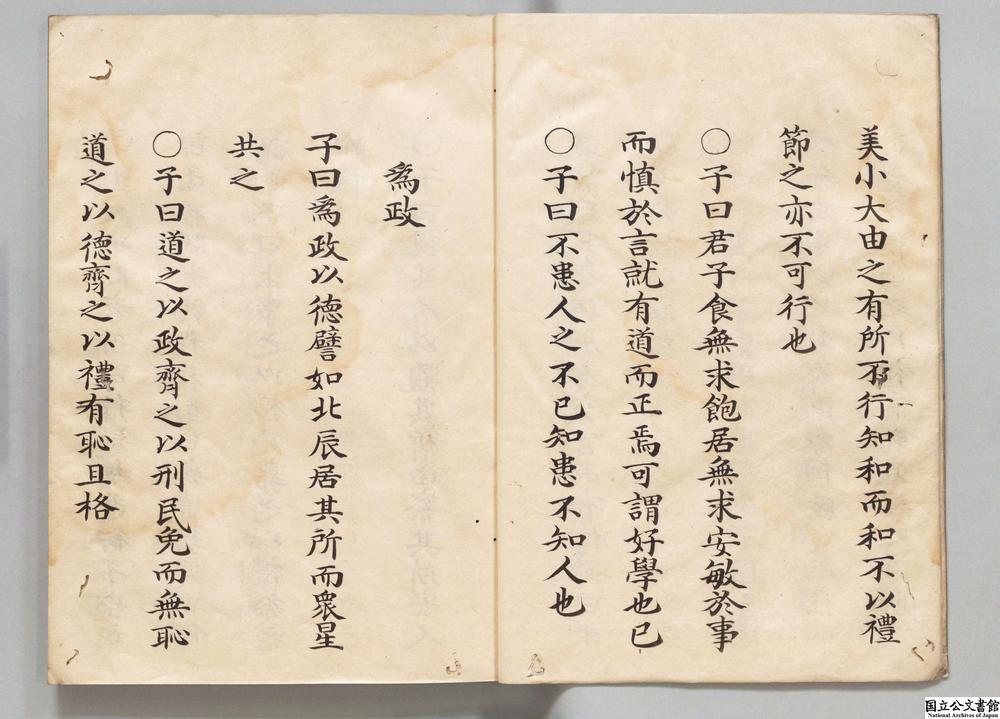 美小大由之有所不行知和而和不以禮
節之亦不可行也
○子曰君子食無求飽居無求安敏於事
而慎於言就有道而正焉可謂好學也已
○子曰不患人之不已知患不知人也
爲政
子曰爲政以德譬如北辰居其所而衆星
共之
○子曰道之以政齊之以刑民免而無恥
道之以德齊之以禮有恥且格
国立公文書館
National Archives of Japan